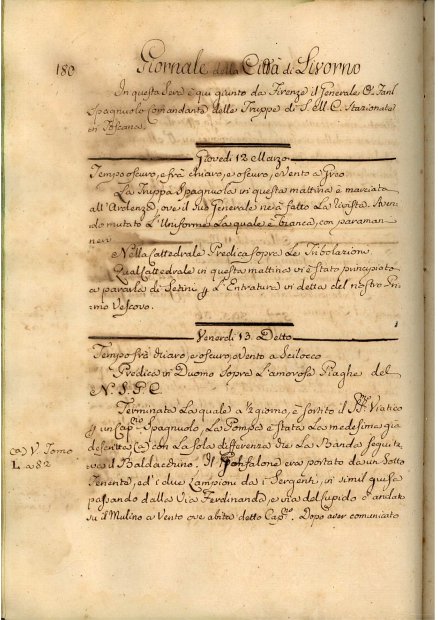 180 Giornale della Città di Livorno
In questa sera è qui giunto da Firenze il Generale
Spagnuolo Comandante delle Truppe di S. M. C. Stazionate
in Toscana
Giovedì 12 Marzo
Tempo oscuro, e frà chiaro, e oscuro, e vento a Greco
La Truppa Spagnuola in questa mattina è marciata
all'Ardenza, ove il Suo Generale ne à fatto La Rivista. Aven
do mutato L'Uniforme La quale è bianca, con paraman
neri
Nella Cattedrale Predica sopra Le Tribolazioni
Qual Cattedrale in questa mattina vi è stato principiato
a pararla di Setini p L'Entratura in detta del nostro
mo Vescovo.
Venerdì 13 Detto
Tempo frà chiaro, e oscuro, e Vento a Scilocco
Predica in Duomo sopra L'amorose Piaghe del
N. S. G. C.
Terminata La quale a ½ giorno, è sortito il SS Viatico
p un Capno Spagnuolo, La Pompa è stata La medesima già
descritta (a) con La sola differenza che La Banda seguita
va il Baldacchino. Il Gonfalone era portato da un Sotto
Tenente, ed i due Lampioni da i Sergenti, in simil guisa
passando dalla Via Ferdinanda, e via del andat
su il Mulino a Vento ove abita detto Capno. Dopo aver comunicato
(a) V. Tomo
L. a 82